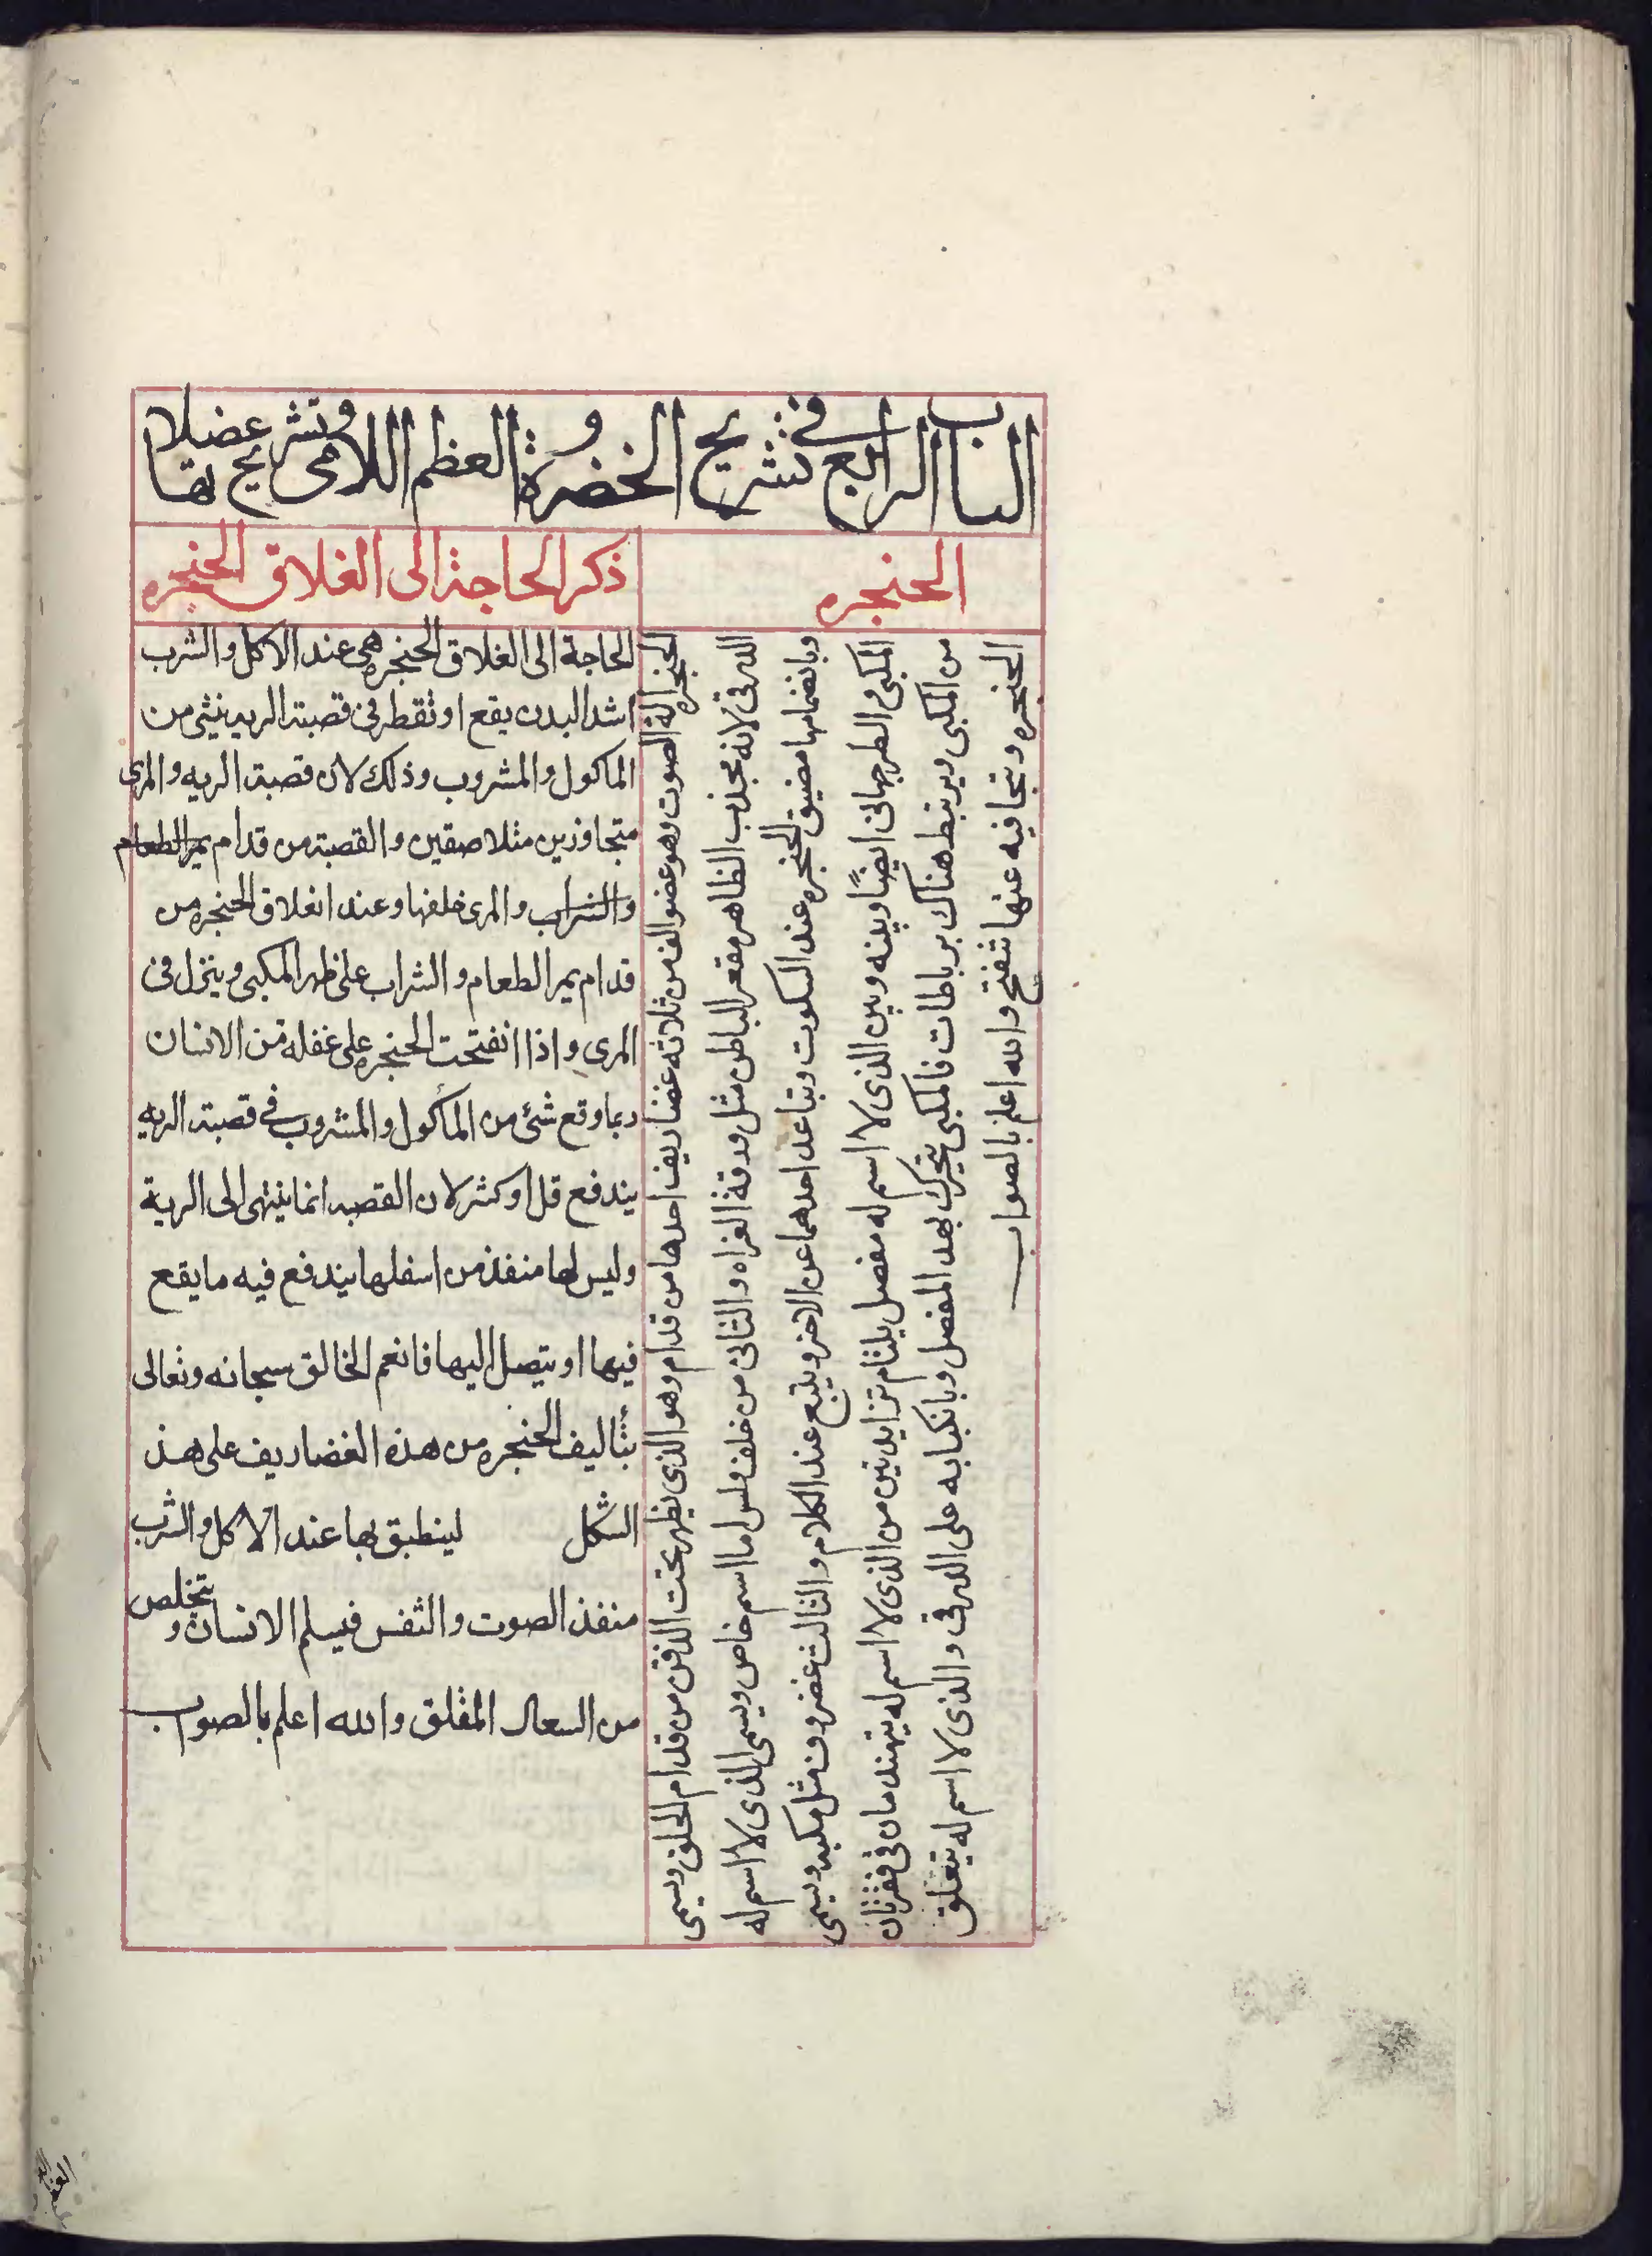 الباب الرابع في تشريح الحضرة و العظم اللامى وتشريح عضلاتها
الحنجره
الحنجره الة الصوت وهو عضو الف من ثلاثه غضاريف احدها من قدام وهو الذى يظهر تحت الذقن من قدام الحلق ويسمى
الدرقى لانه محذب الظاهر مقعر الباطن مثل ودقة الغراه والثانى من خلف وليس اما اسم خاص ويسمى الذى لا اسم له
وبانضمامها مضيق الحنجره عند السكوت وتباعد احدهما عن الاخر ويتبع عند الكلام والثالث غضروف مثل مكبه ويسمى
المكبى و الطرجهانى ايضًا وبينه وبين الذى لا اسم له مفصل يلتام تزايدتين من الذى لا اسم له يتهندمان فى فقرتان
من المكبى ويرتبط هناك برباطات فالمكبى يتحرك بهد المفصل وبانكبابه على الدرقى والذى لا اسم له يتغلق
الحنجره وبتجافيه عنها تنفتح والله اعلم بالصواب
ذكر الحاجة الى الغلاق الحنجره
الحاجة الى الغلاق الحنجره هى عند الاكل والشرب
اشد البدن يقع او ثقطر فى قصبة الريه شئ من
الماكول والمشروب وذلك لان قصبة الريه والمرى
متجاوزين مثلاصقين والقصبة من قدام يمر الطعام
والشراب والمرى خلفها وعند انغلاق الحنجره من
قدام يمر الطعام والشراب على ظهر المكبى وينزل فى
المرى واذا انفتحت الحنجره على غفلة من الانسان
ربما وقع شئ من المأكول والمشروب فى قصبة الريه
يندفع قل او كثر لان القصبه انما ينتهى الى الرية
وليس لها منفذ من اسفلها يندفع فيه ما يقع
فيها او يتصل اليها فانعم الخالق سبحانه وتعالى
بتأليف الحنجره من هذه الغضاريف على هذ
الشكل لينطبق بها عند الاكل والشرب
منفذ الصوت والنفس فيسلم الانسان و يتخلص
من السعال المقلق والله اعلم بالصواب